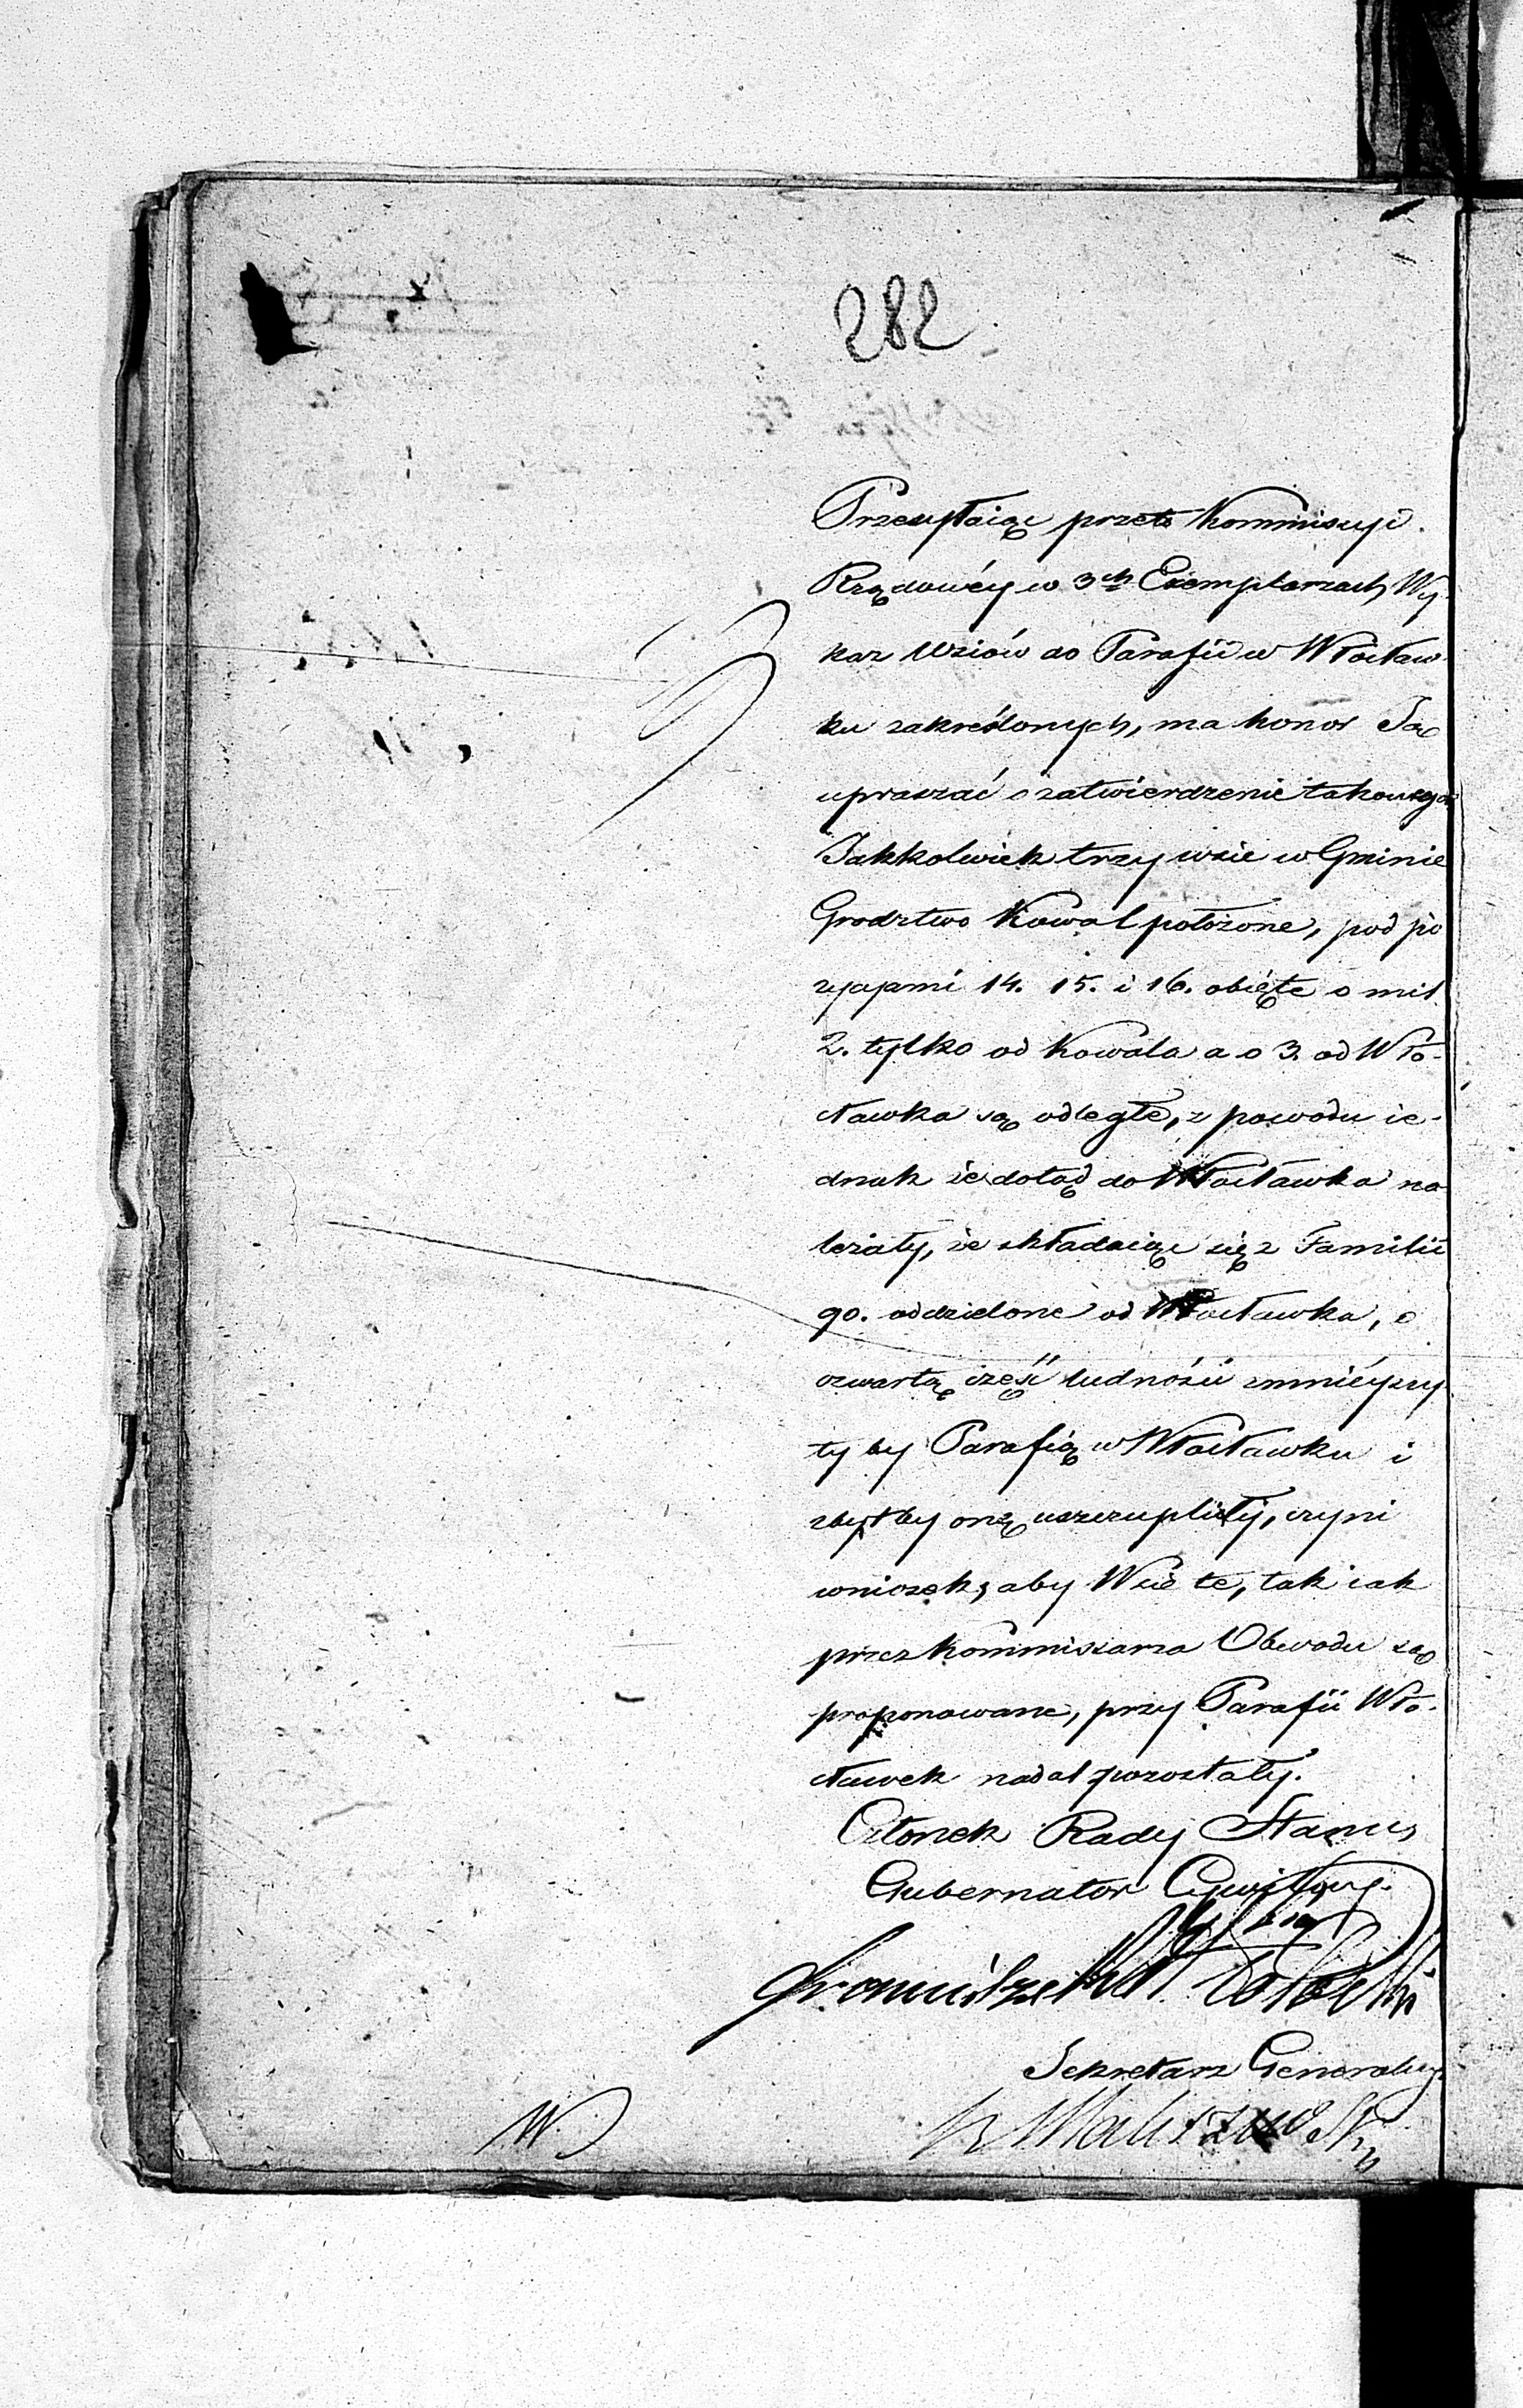 282
Przesyłaiąc przeto Kommissyi
Rządowéy w 3ch Exemplarzach Wy-
kaz Wsiów do Parafii w Włocław-
ku zakreślonych, ma honor Ją
upraszać o zatwierdzenie takowego
Jakkolwiek trzy wsie w Gminie
Grodztwo Kowal położone, pod po
zycyami 14. 15. i 16. obięte o mil
2. tylko od Kowala a o 3. od Wło-
cławka są odległe, z powodu ie-
dnak że dotąd do Włocławka na
leżały, że składaiąc się z Familii
90. oddzielone od Włocławka, o
czwartą część ludności zmnieyszy
ły by Parafią w Włocławku i
zbyt by oną uszczupliły, czyni
wniosek, aby Wsie te, tak iak
przez Kommissarza Obwodu są
proponowane, przy Parafii Wło-
cławek nadal pozostały.
Członek Rady Stanu,
Gubernator Cywilny
Franciszek Potocki
Sekretarz Generalny
W